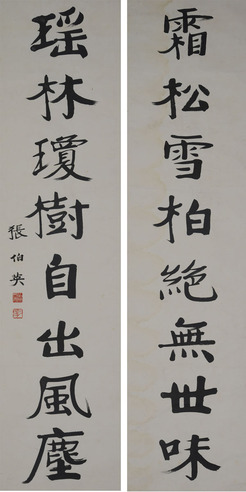 霜松雪柏絕無世味
瑶林瓊樹自出風塵
張伯英